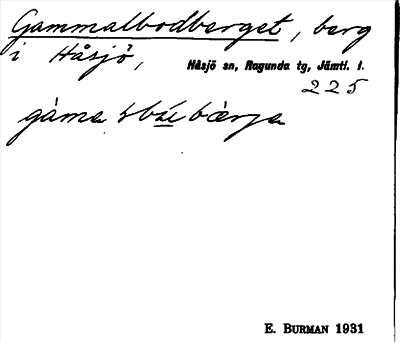 Gammalbodberget, berg
i Håsjö,
Håsjö sn, Ragunda tg, Jämtl. l.
225
E. BURMAN 1931